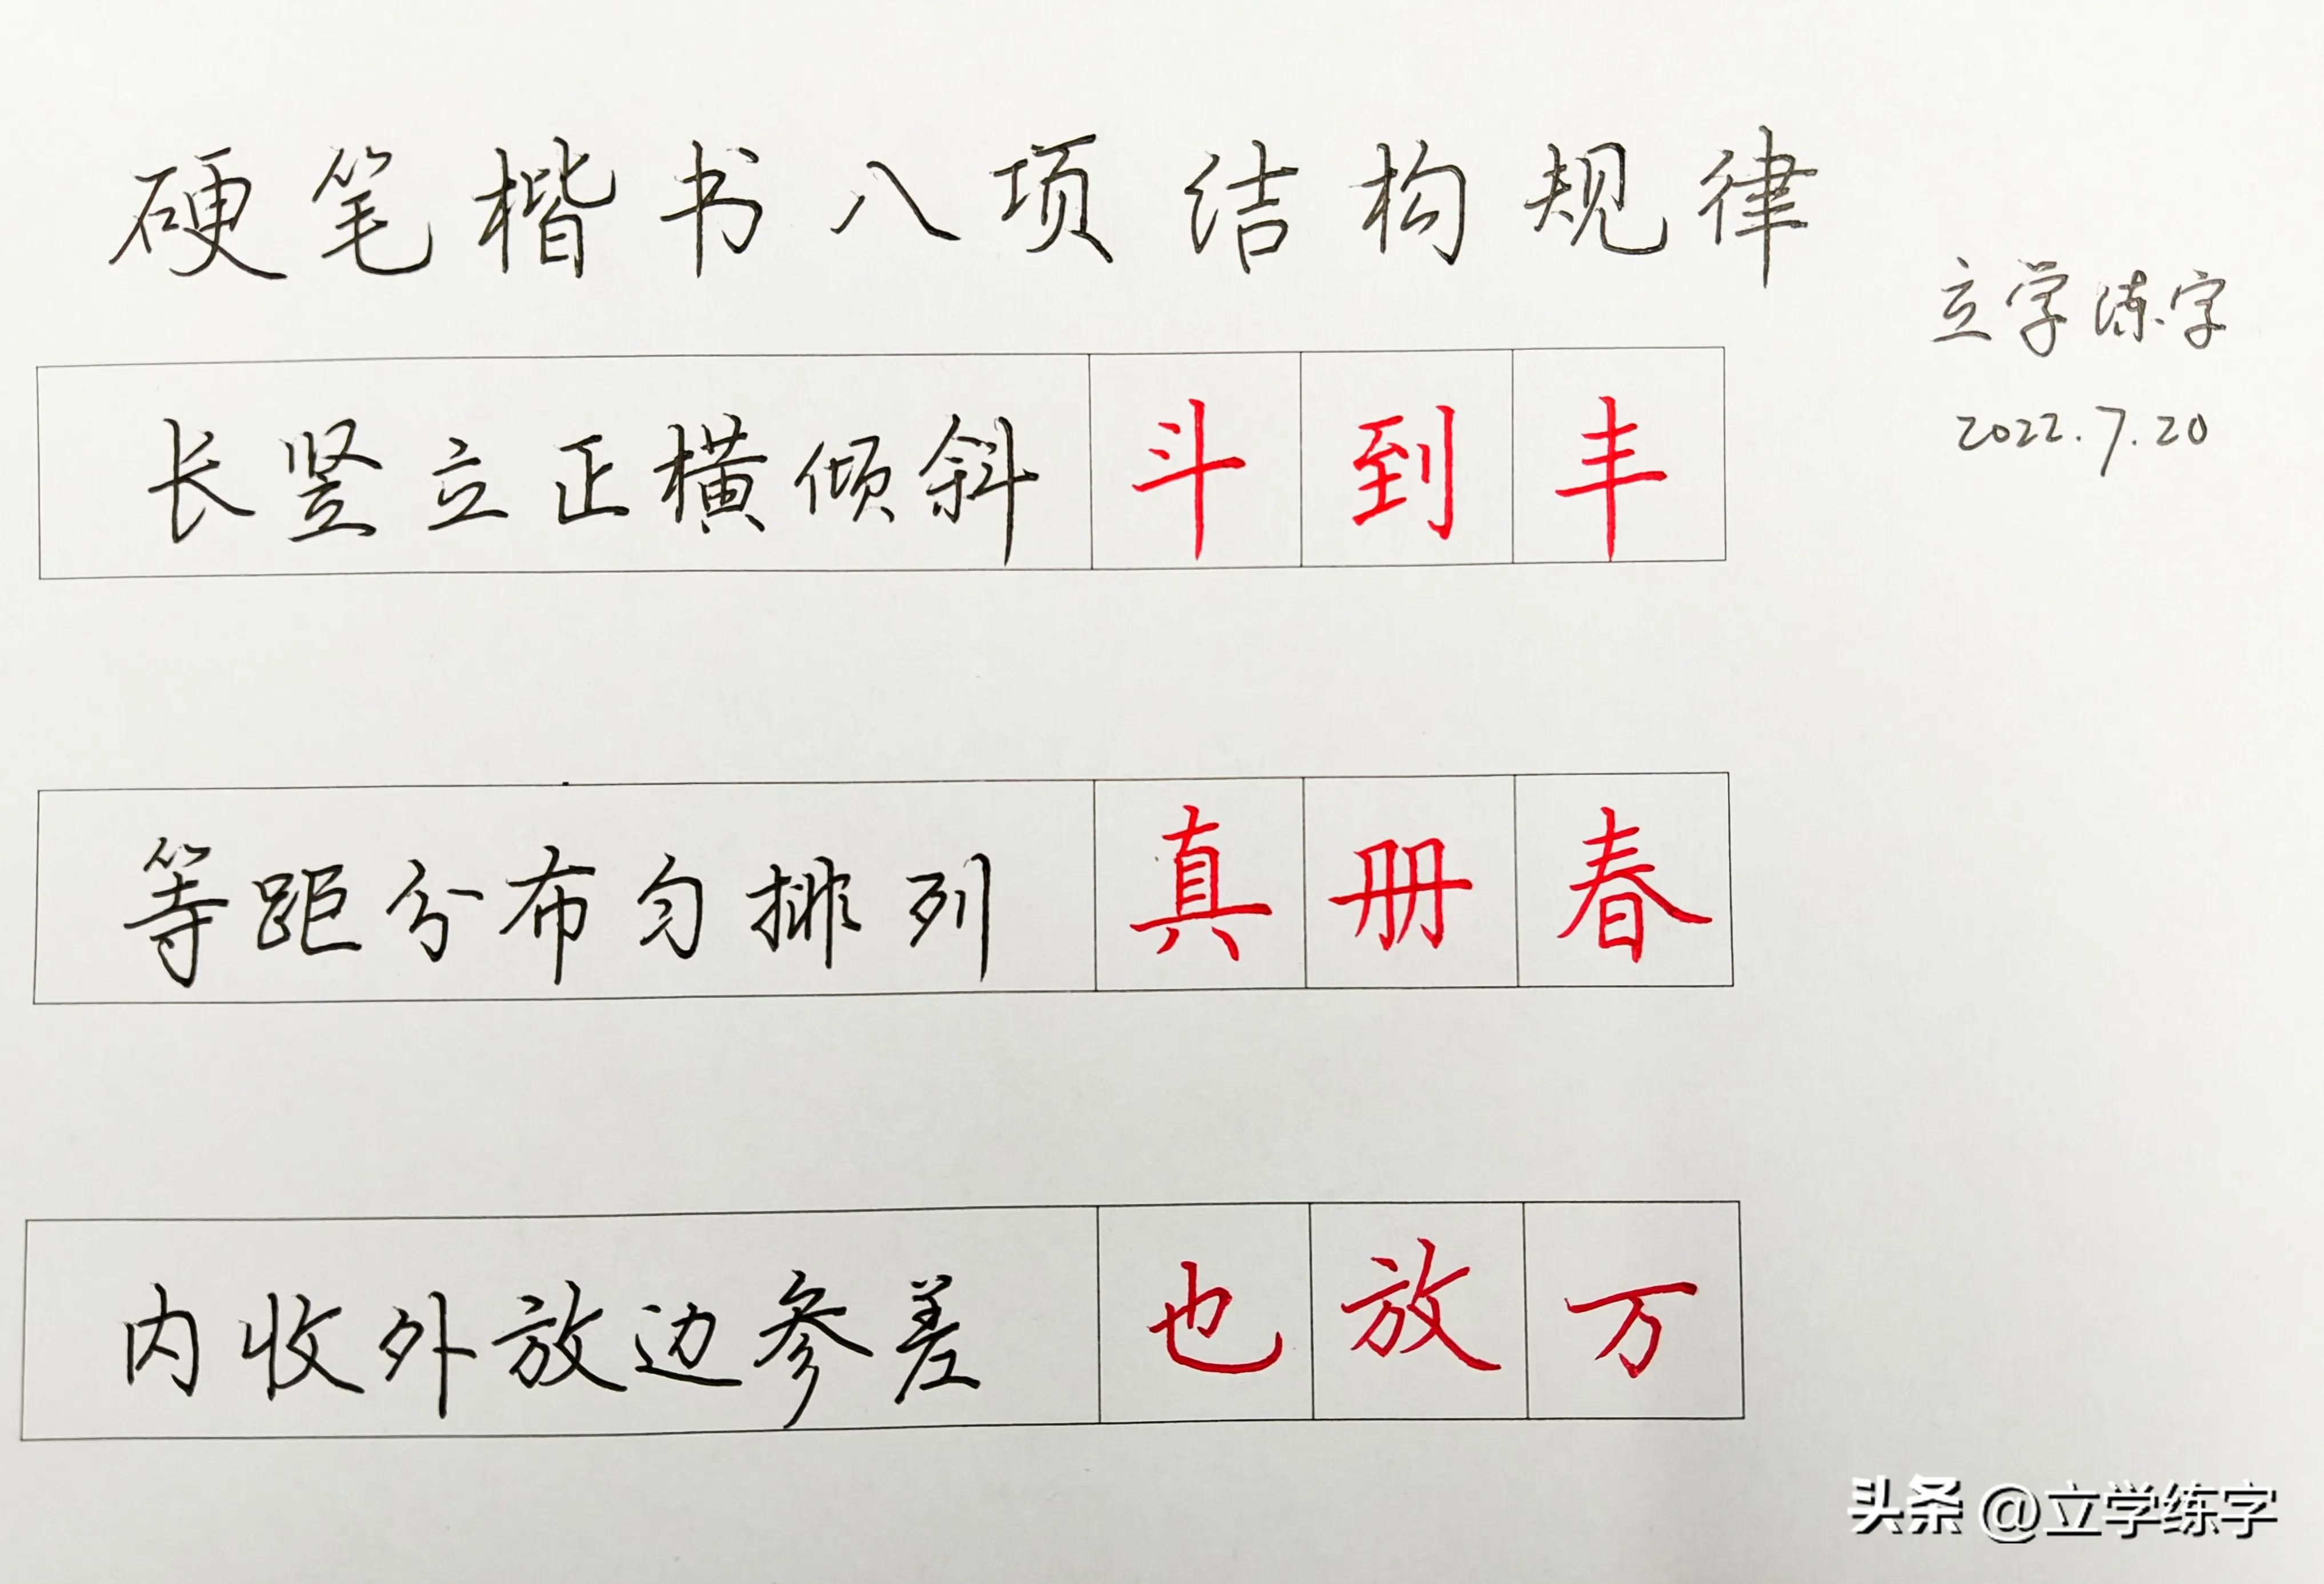 硬笔楷书八项结构规律
立学练字
2022.7.20
长竖立正横倾斜 斗 到 丰
等距分布匀排列 真 册 春
内收外放边参差 也 放 万
头条 @立学练字